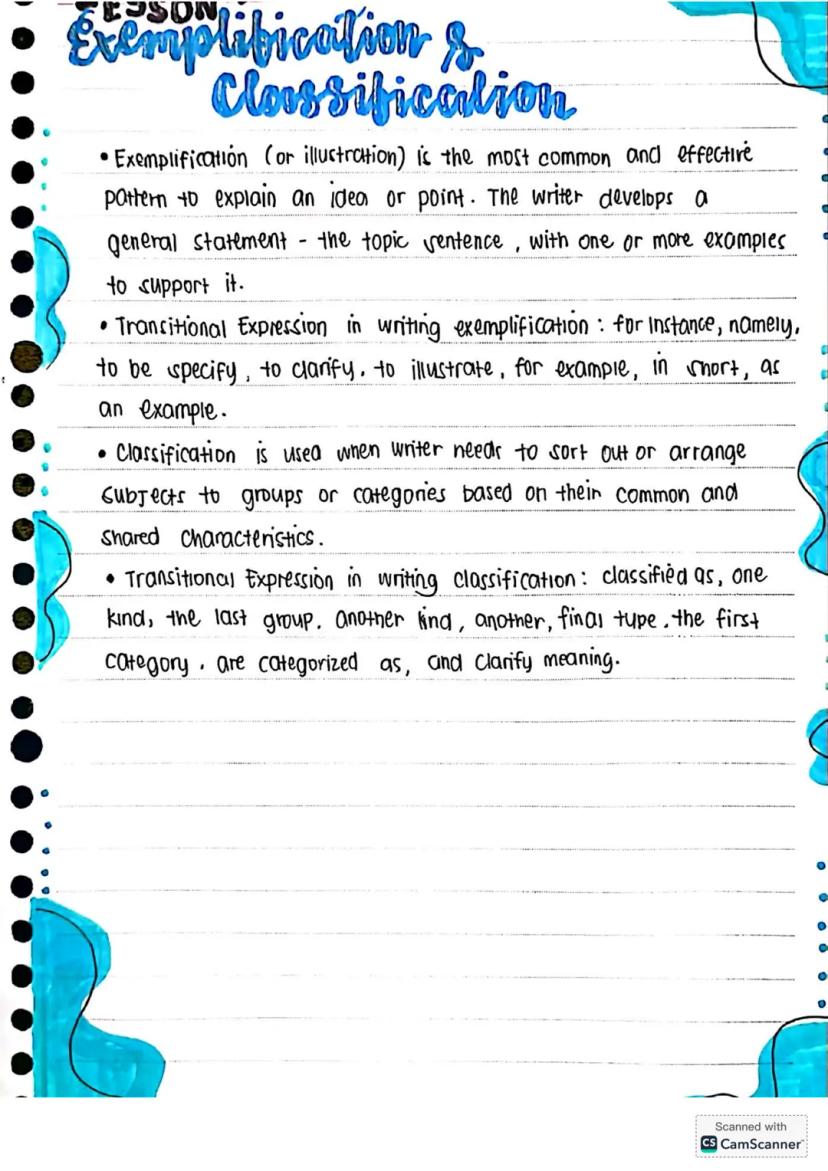 LESSON
Exemplification &
Classification
• Exemplification (or illustration) is the most common and effective
pattern to explain an idea or point. The writer develops a
general statement - the topic sentence, with one or more examples
to support it.
• Transitional Expression in writing exemplification: for instance, namely,
to be specify, to clarify, to illustrate, for example, in short, as
an example.
• Classification is used when writer needs to sort out or arrange
subjects to groups or categories based on their common and
shared characteristics.
• Transitional Expression in writing classification: classified as, one
kind, the last group, another kind, another, final type, the first
category, are categorized as, and clarify meaning.
Scanned with
CS CamScanner